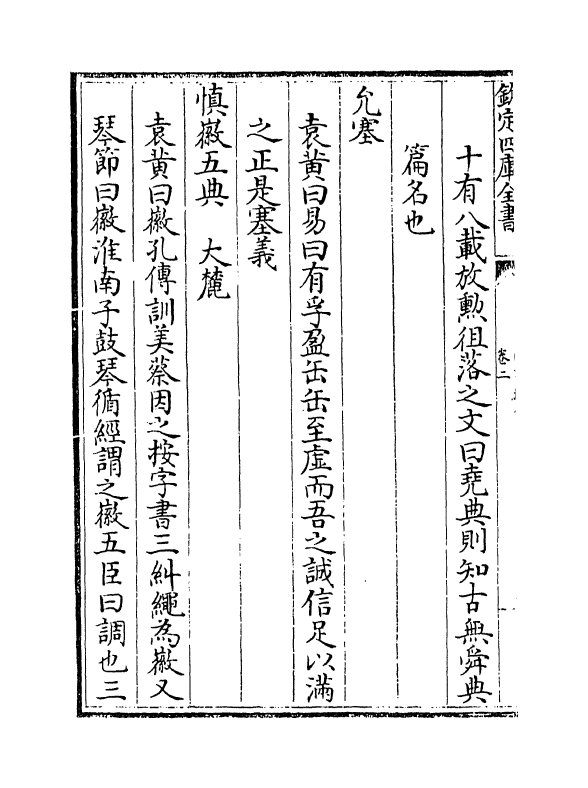 欽定四庫全書
卷二
十有八載放勲徂落之文曰堯典則知古無舜典
篇名也
允塞
袁黄曰易曰有孚盈缶缶至虛而吾之誠信足以滿
之正是塞義
慎徽五典　大麓
袁黄曰徽孔傳訓美蔡因之按字書三糾繩為徽又
琴節曰徽淮南子鼓琴循經謂之徽五臣曰調也三